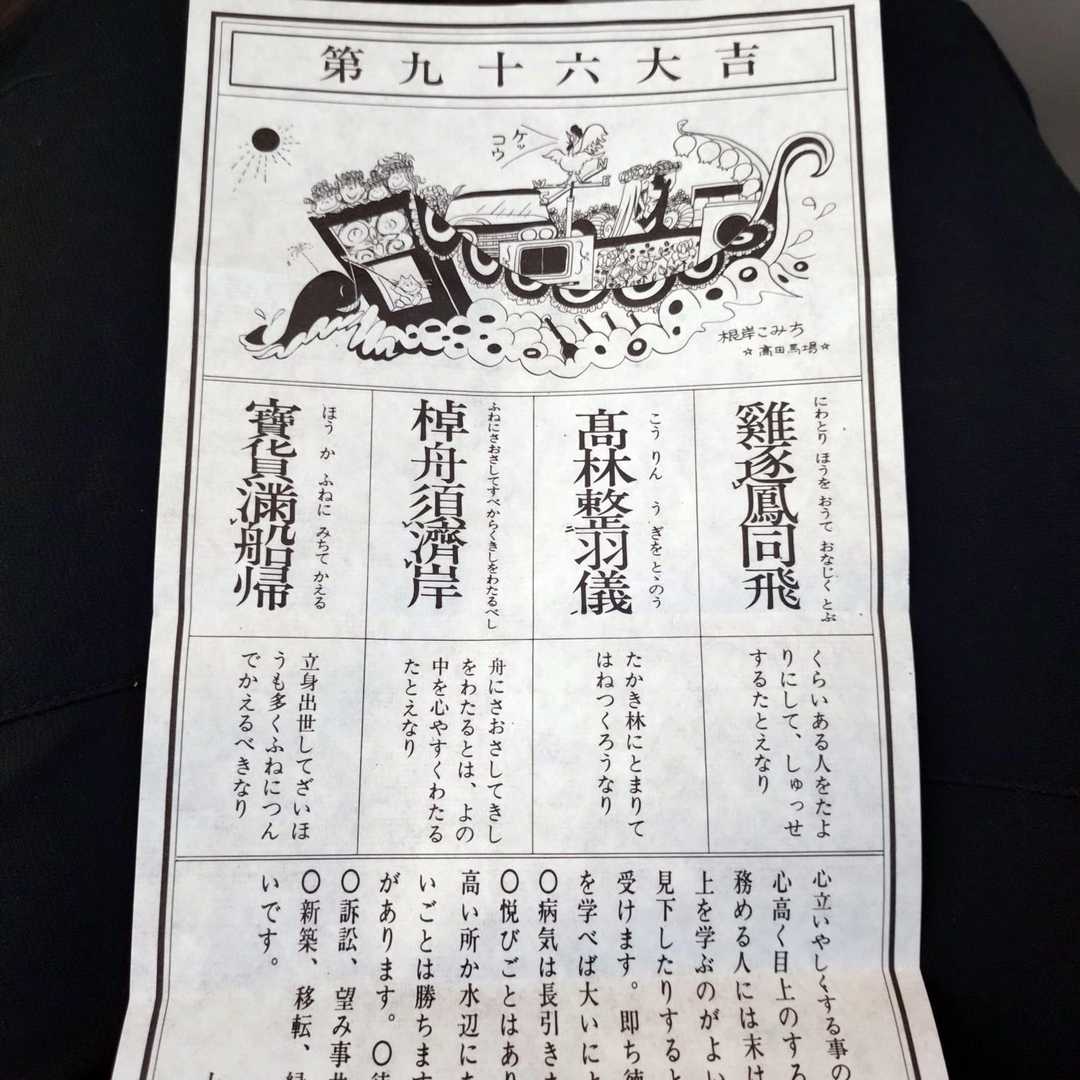 第九十六大吉
ケッコウ
根岸こみち
☆高田馬場☆
にわとり ほうを おうて おなじく とぶ
雞逐鳳同飛
こう りん う ぎを とゝのう
髙林整羽儀
ふねにさおさしてすべからくきしをわたるべし
棹舟須濟岸
ほう か ふねに みちて かえる
寶貨滿船帰
くらいある人をたよ
りにして、しゅっせ
するたとえなり
たかき林にとまりて
はねつくろうなり
舟にさおさしてきし
をわたるとは、よの
中を心やすくわたる
たとえなり
立身出世してざいほ
うも多くふねにつん
でかえるべきなり
心立いやしくする事の
心高く目上のする
務める人には末は
上を学ぶのがよい
見下したりすると
受けます。即ち徳
を学べば大いにと
〇病気は長引き
〇悦びごとはあり
高い所か水辺に
いごとは勝ちます
があります。〇
〇訴訟、望み事
〇新築、移転、
いです。